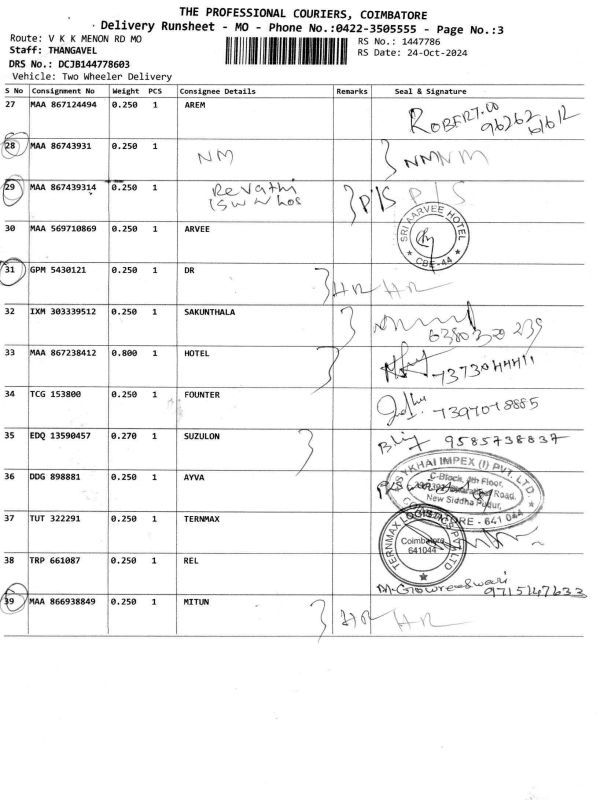 THE PROFESSIONAL COURIERS, COIMBATORE
Delivery Runsheet - MO - Phone No.:0422-3505555 - Page No.:3
Route: V K K MENON RD MO RS No.: 1447786
Staff: THANGAVEL RS Date: 24-Oct-2024
DRS No.: DCJB144778603
Vehicle: Two Wheeler Delivery
S No Consignment No Weight PCS Consignee Details Remarks Seal & Signature
27 MAA 867124494 0.250 1 AREM ROBERT.DD
96262 61612
28 MAA 86743931 0.250 1 NM NMNM
29 MAA 867439314 0.250 1 Revathi P/S P/S
30 MAA 569710869 0.250 1 ARVEE SRI AARVEE HOTEL CBE-44
31 GPM 5430121 0.250 1 DR HR HR
32 IXM 303339512 0.250 1 SAKUNTHALA
33 MAA 867238412 0.800 1 HOTEL 7373044411
34 TCG 153800 0.250 1 FOUNTER 7397018885
35 EDQ 13590457 0.270 1 SUZULON 9585738837
36 DDG 898881 0.250 1 AYVA
YKHAI IMPEX (I) PVT. LTD.
C-Block, 4th Floor,
Road,
New Siddha Pudur,
ORE - 641 044
37 TUT 322291 0.250 1 TERNMAX
TERNMAX
Coimbatore
641044
38 TRP 661087 0.250 1 REL
M. Gowreeswari
9715147633
39 MAA 866938849 0.250 1 MITUN HR HR